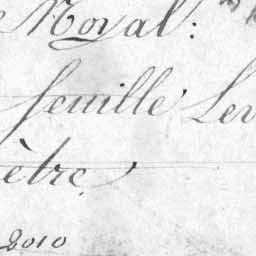 Moyal:
feuille Lev
être
2010